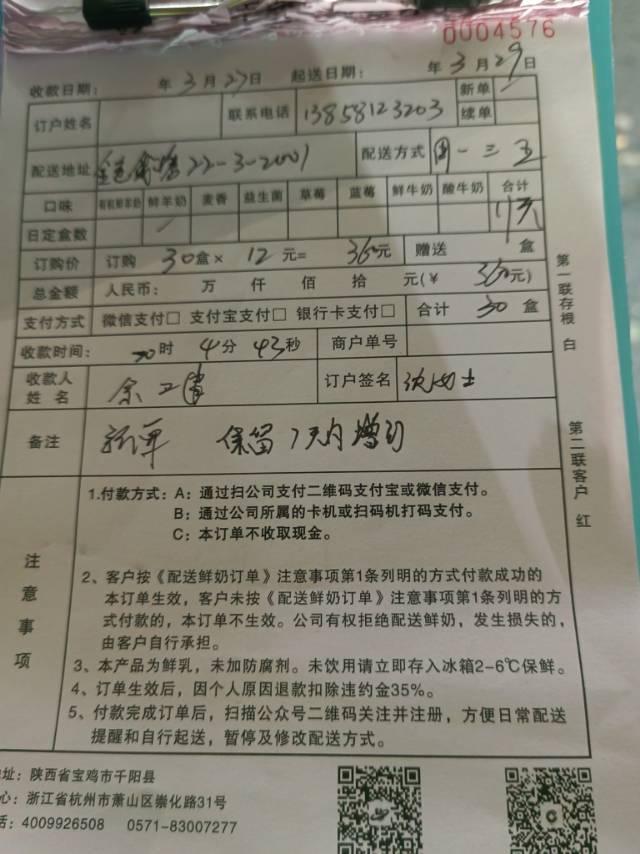 0004576
收款日期： 年 3 月 27 日 起送日期： 年 3 月 29 日
订户姓名 联系电话 13858123203 新单
续单
配送地址 22-3-2001 配送方式 周一 三 五
口味 有机鲜羊奶 鲜羊奶 麦香 益生菌 草莓 蓝莓 鲜牛奶 酸牛奶 合计
日定盒数
订购价 订购 30 盒× 12 元= 360元 赠送 盒
总金额 人民币： 万 仟 佰 拾 元(￥ 360元)
支付方式 微信支付□ 支付宝支付□ 银行卡支付□ 合计 30 盒
收款时间： 时 4 分 43 秒 商户单号
收款人
姓 名 订户签名 沈女士
备注 新单 保留7天内增订
第一联存根 白
第二联客户 红
注意事项
1.付款方式：A：通过扫公司支付二维码支付宝或微信支付。
B：通过公司所属的卡机或扫码机打码支付。
C：本订单不收取现金。
2、客户按《配送鲜奶订单》注意事项第1条列明的方式付款成功的
本订单生效，客户未按《配送鲜奶订单》注意事项第1条列明的方
式付款的，本订单不生效。公司有权拒绝配送鲜奶，发生损失的，
由客户自行承担。
3、本产品为鲜乳，未加防腐剂。未饮用请立即存入冰箱2-6℃保鲜。
4、订单生效后，因个人原因退款扣除违约金35%。
5、付款完成订单后，扫描公众号二维码关注并注册，方便日常配送
提醒和自行起送，暂停及修改配送方式。
址：陕西省宝鸡市千阳县
心：浙江省杭州市萧山区崇化路31号
：4009926508 0571-83007277